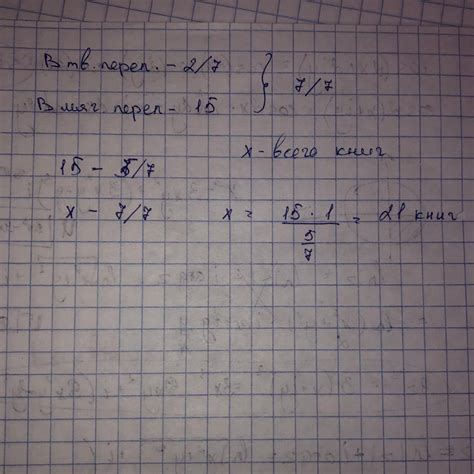 В тв. переп. - 2/7
В мяг. переп - 15
} 7/7
x - всего книг
15 - 5/7
x - 7/7
x = (15 · 1)/(5/7) = 21 книг